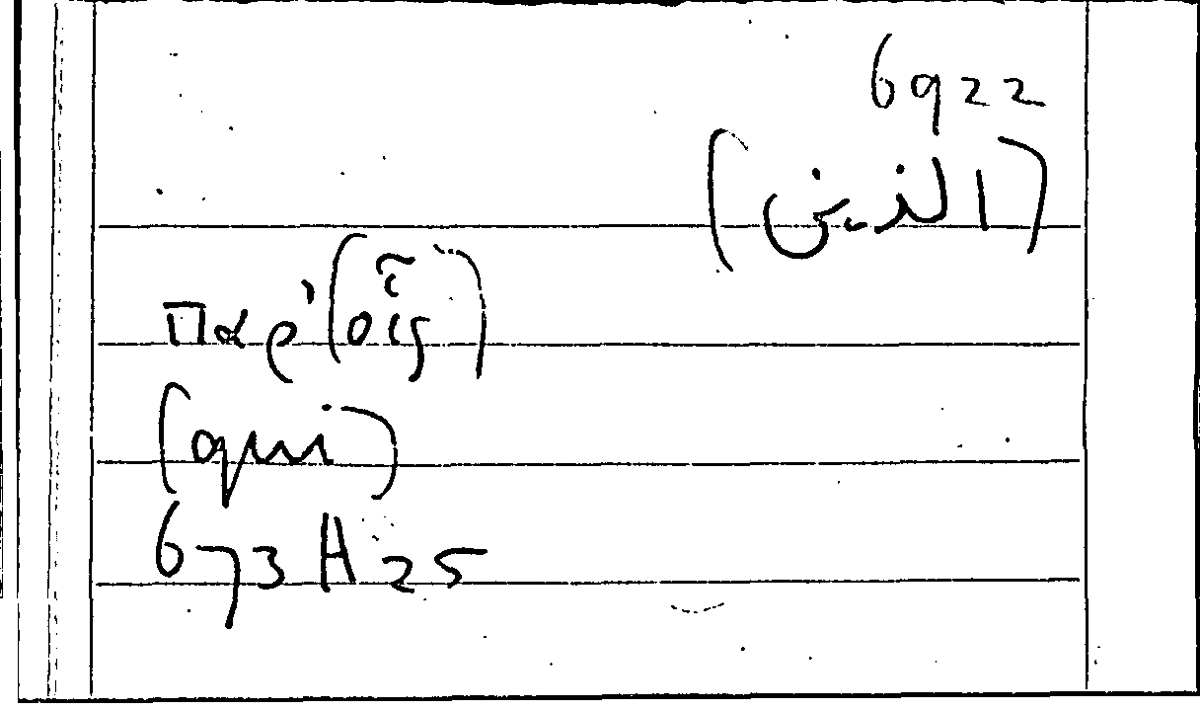 6922
(الذين)
παρ' (οἷς)
(qui)
673 A 25